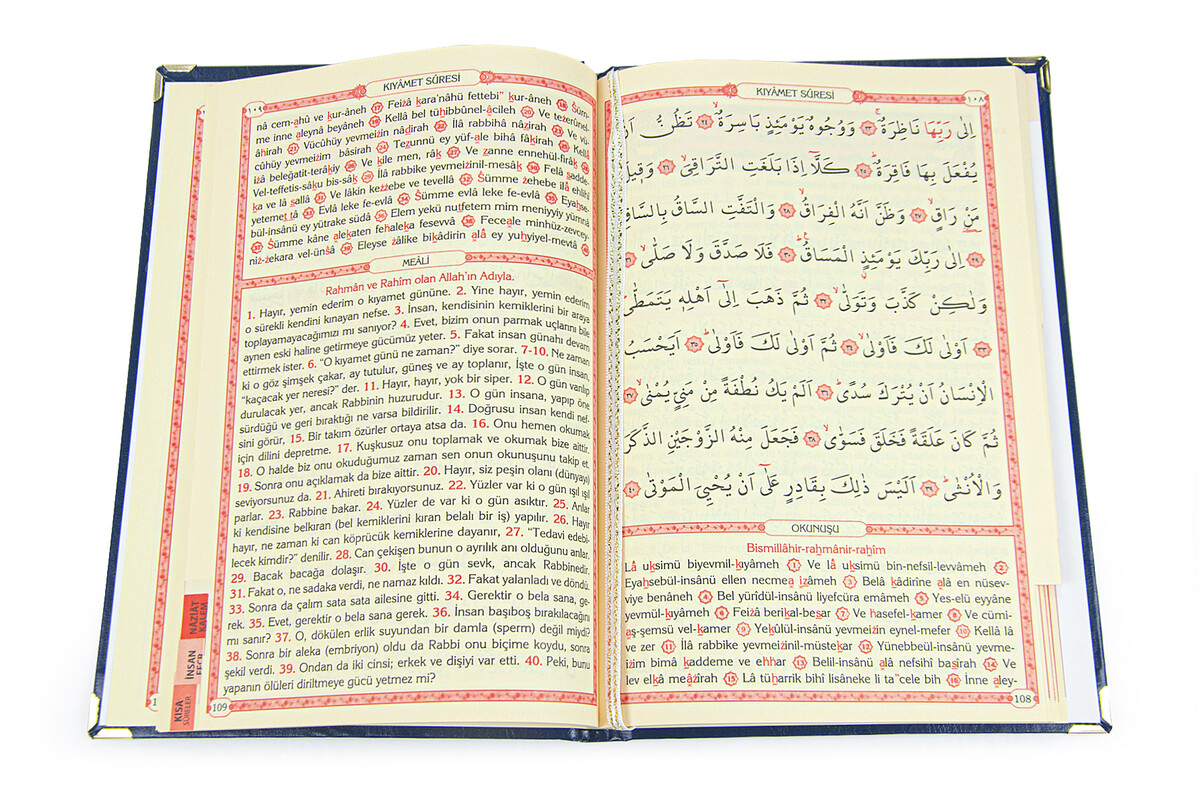 KIYÂMET SÛRESİ
١٠٨
اِلٰى رَبِّهَا نَاظِرَةٌ ﴿٢٣﴾ وَوُجُوهٌ يَوْمَئِذٍ بَاسِرَةٌ ﴿٢٤﴾ تَظُنُّ اَنْ
يُفْعَلَ بِهَا فَاقِرَةٌ ﴿٢٥﴾ كَلَّٓا اِذَا بَلَغَتِ التَّرَاقِيَ ﴿٢٦﴾ وَق۪يلَ
مَنْ رَاقٍ ﴿٢٧﴾ وَظَنَّ اَنَّهُ الْفِرَاقُ ﴿٢٨﴾ وَالْتَفَّتِ السَّاقُ بِالسَّاقِ
﴿٢٩﴾ اِلٰى رَبِّكَ يَوْمَئِذٍ الْمَسَاقُ ﴿٣٠﴾ فَلَا صَدَّقَ وَلَا صَلّٰى ﴿٣١﴾
وَلٰكِنْ كَذَّبَ وَتَوَلّٰى ﴿٣٢﴾ ثُمَّ ذَهَبَ اِلٰٓى اَهْلِه۪ يَتَمَطّٰى
﴿٣٣﴾ اَوْلٰى لَكَ فَاَوْلٰى ﴿٣٤﴾ ثُمَّ اَوْلٰى لَكَ فَاَوْلٰى ﴿٣٥﴾ اَيَحْسَبُ
الْاِنْسَانُ اَنْ يُتْرَكَ سُدًى ﴿٣٦﴾ اَلَمْ يَكُ نُطْفَةً مِنْ مَنِيٍّ يُمْنٰى ﴿٣٧﴾
ثُمَّ كَانَ عَلَقَةً فَخَلَقَ فَسَوّٰى ﴿٣٨﴾ فَجَعَلَ مِنْهُ الزَّوْجَيْنِ الذَّكَرَ
وَالْاُنْثٰى ﴿٣٩﴾ اَلَيْسَ ذٰلِكَ بِقَادِرٍ عَلٰٓى اَنْ يُحْيِيَ الْمَوْتٰى ﴿٤٠﴾
OKUNUŞU
Bismillâhir-rahmânir-rahîm
Lâ uksimü biyevmil-kıyâmeh 1 Ve lâ uksimü bin-nefsil-levvâmeh 2
Eyahsebül-insânü ellen necmea izâmeh 3 Belâ kâdirîne alâ en nüsev-
viye benâneh 4 Bel yürîdül-insânü liyefcüra emâmeh 5 Yes-elü eyyâne
yevmül-kıyâmeh 6 Feizâ berikal-besar 7 Ve hasefel-kamer 8 Ve cümi-
aş-şemsü vel-kamer 9 Yekûlül-insânü yevmeizin eynel-mefer 10 Kellâ lâ
ve zer 11 İlâ rabbike yevmeizinil-müstekar 12 Yünebbeül-insânü yevme-
izim bimâ kaddeme ve ehhar 13 Belil-insânü alâ nefsihî basîrah 14 Ve
lev elkâ meâzîrah 15 Lâ tüharrik bihî lisâneke li ta"cele bih 16 İnne aley-
108
KIYÂMET SÛRESİ
١٠٩
nâ cem-ahû ve kur-âneh 17 Feizâ kara'nâhü fettebi" kur-âneh 18 Süm-
me inne aleynâ beyâneh 19 Kellâ bel tühibbûnel-âcileh 20 Ve tezerûnel-
âhırah 21 Vücûhüy yevmeizin nâdırah 22 İlâ rabbihâ nâzırah 23 Ve vü-
cûhüy yevmeizim bâsirah 24 Tezunnü ey yüf-ale bihâ fâkirah 25 Kellâ
izâ beleğatit-terâkiy 26 Ve kîle men, râk 27 Ve zanne ennehül-firâk 28
Vel-teffetis-sâku bis-sâk 29 İlâ rabbike yevmeizinil-mesâk 30 Felâ sadde-
ka ve lâ sallâ 31 Ve lâkin kezzebe ve tevellâ 32 Sümme zehebe ilâ ehlihî
yetemettâ 33 Evlâ leke fe-evlâ 34 Sümme evlâ leke fe-evlâ 35 Eyahse-
bül-insânü ey yütrake südâ 36 Elem yekü nutfetem mim meniyyiy yümnâ
37 Sümme kâne alekaten fehaleka fesevvâ 38 Feceale minhüz-zevcey-
niz-zekara vel-ünsâ 39 Eleyse zâlike bikâdirin alâ ey yuhyiyel-mevtâ 40
MEÂLİ
Rahmân ve Rahîm olan Allah'ın Adıyla.
1. Hayır, yemin ederim o kıyamet gününe. 2. Yine hayır, yemin ederim
o sürekli kendini kınayan nefse. 3. İnsan, kendisinin kemiklerini bir araya
toplayamayacağımızı mı sanıyor? 4. Evet, bizim onun parmak uçlarını bile
aynen eski haline getirmeye gücümüz yeter. 5. Fakat insan günahı devam
ettirmek ister. 6. "O kıyamet günü ne zaman?" diye sorar. 7-10. Ne zaman
ki o göz şimşek çakar, ay tutulur, güneş ve ay toplanır, İşte o gün insan,
"kaçacak yer neresi?" der. 11. Hayır, hayır, yok bir siper. 12. O gün varılıp
durulacak yer, ancak Rabbinin huzurudur. 13. O gün insana, yapıp öne
sürdüğü ve geri bıraktığı ne varsa bildirilir. 14. Doğrusu insan kendi nef-
sini görür, 15. Bir takım özürler ortaya atsa da. 16. Onu hemen okumak
için dilini depretme. 17. Kuşkusuz onu toplamak ve okumak bize aittir.
18. O halde biz onu okuduğumuz zaman sen onun okunuşunu takip et.
19. Sonra onu açıklamak da bize aittir. 20. Hayır, siz peşin olanı (dünyayı)
seviyorsunuz da. 21. Ahireti bırakıyorsunuz. 22. Yüzler var ki o gün ışıl ışıl
parlar. 23. Rabbine bakar. 24. Yüzler de var ki o gün asıktır. 25. Anlar
ki kendisine belkıran (bel kemiklerini kıran belalı bir iş) yapılır. 26. Hayır
hayır, ne zaman ki can köprücük kemiklerine dayanır, 27. "Tedavi edebi-
lecek kimdir?" denilir. 28. Can çekişen bunun o ayrılık anı olduğunu anlar.
29. Bacak bacağa dolaşır. 30. İşte o gün sevk, ancak Rabbinedir.
31. Fakat o, ne sadaka verdi, ne namaz kıldı. 32. Fakat yalanladı ve döndü.
33. Sonra da çalım sata sata ailesine gitti. 34. Gerektir o bela sana, ge-
rek. 35. Evet, gerektir o bela sana gerek. 36. İnsan başıboş bırakılacağını
mı sanır? 37. O, dökülen erlik suyundan bir damla (sperm) değil miydi?
38. Sonra bir aleka (embriyo) oldu da Rabbi onu biçime koydu, sonra
şekil verdi. 39. Ondan da iki cinsi; erkek ve dişiyi var etti. 40. Peki, bunu
yapanın ölüleri diriltmeye gücü yetmez mi?
109
NÂZİÂT
KALEM
İNSAN
FECR
KISA
SÛRELER